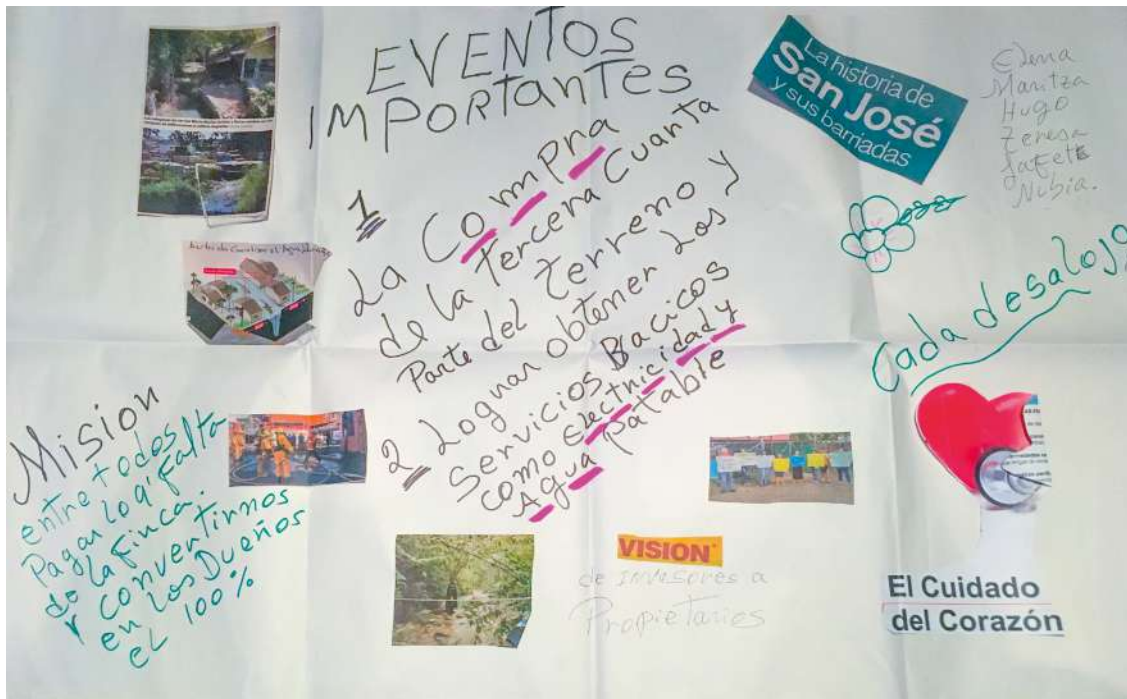 EVENTOS
IMPORTANTES
1
La Compra
de la tercera Cuarta
Parte del terreno y
2 Lograr obtener Los
Servicios Bacicos
como electricidad y
Agua patable
La historia de
San José
y sus barriadas
Maritza
Hugo
Teresa
Nubia.
Cada desalojo
Mision
entre todos
Pagar lo q' falta
de la finca.
y conventirnos
en los Dueños
el 100%
VISION
de invasores a
Propietarios
El Cuidado
del Corazón